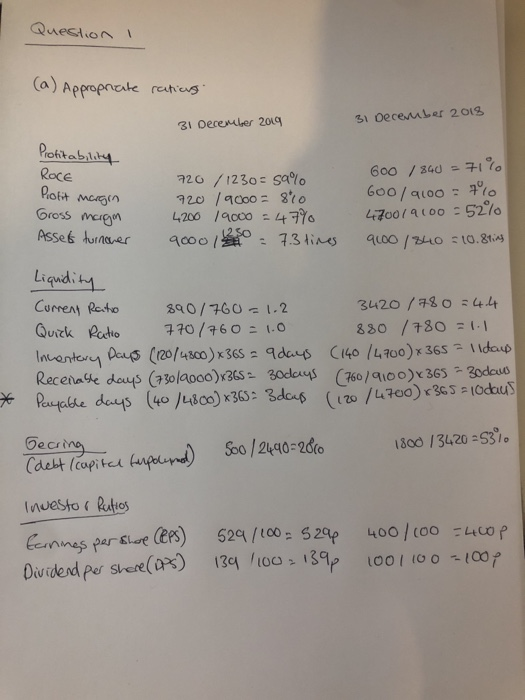 Question 1
(a) Appropriate ratios
31 December 2019 31 December 2018
Profitability
ROCE 720 / 1230 = 59% 600 / 840 = 71%
Profit margin 720 / 9000 = 8% 600 / 9100 = 7%
Gross margin 4200 / 9000 = 47% 4700 / 9100 = 52%
Assets turnover 9000 / 1230 = 7.3 times 9100 / 840 = 10.8 times
Liquidity
Current Ratio 890 / 760 = 1.2 3420 / 780 = 4.4
Quick Ratio 770 / 760 = 1.0 880 / 780 = 1.1
Inventory Days (120/4800) x 365 = 9 days (140 / 4700) x 365 = 11 days
Receivable days (730/9000) x 365 = 30 days (760 / 9100) x 365 = 30 days
* Payable days (40 / 4800) x 365 = 3 days (120 / 4700) x 365 = 10 days
Gearing 500 / 2490 = 20% 1800 / 3420 = 53%
(debt / capital employed)
Investor Ratios
Earnings per share (EPS) 529 / 100 = 529p 400 / 100 = 400p
Dividend per share (DPS) 139 / 100 = 139p 100 / 100 = 100p